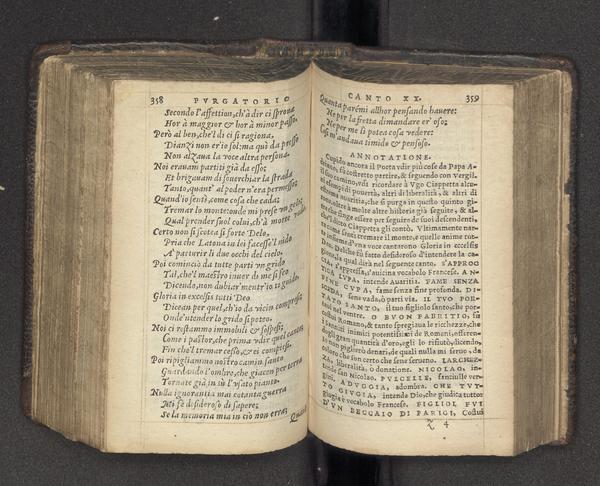 358 PVRGATORIO
Secondo l'affettion, ch'à dir ci sprona
Hor à maggior & hor à minor passo.
Però al ben, che'l dì ci si ragiona,
Dianzi non er'io sol: ma quò da presso
Non alzaua la voce altra persona.
Noi erauam partiti già da esso;
Et brigauam di souerchiar la strada
Tanto, quant'al poder n'era permesso;
Quand'io senti, come cosa che cada,
Tremar lo monte: onde mi prese vn gelo,
Qual prender suol colui, ch'à morte vada.
Certo non si scotea sì forte Delo,
Pria che Latona in lei facesse'l nido
A parturir li due occhi del cielo.
Poi cominciò da tutte parti vn grido
Tal, che'l maestro inuer di me si feo
Dicendo, non dubiar mentr'io ti guido.
Gloria in excelsis tutti Deo
Dicean per quel, ch'io da vicin compresi,
Onde'ntender lo grido si poteo.
Noi ci restammo immobili & sospesi;
Come i pastor, che prima vdir quel canto,
Fin che'l tremar cessò, & ei compiesi.
Poi ripigliammo nostro camin santo
Guardando l'ombre, che giacen per terra
Tornate già in sù l'vsato pianto.
Nulla ignorantia mai cotanta guerra
Mi fè desideroso di sapere;
Se la memoria mia in ciò non erra;
Quanta
CANTO XX. 359
Quanta parémi allhor pensando hauere:
Ne per la fretta dimandare er'oso;
Ne per me lì potea cosa vedere:
Così m'andaua timido & pensoso.
ANNOTATIONE.
Cupido ancora il Poeta vdir più cose da Papa A-
driano, fù costretto partire, & seguendo con Vergil.
il suo camino, vdì ricordare à Vgo Ciappetta alcu-
ni essempi di pouertà, altri di liberalità, & altri di
auaritia, che si purga in questo quinto gi-
rone, oltre à molte altre historie già seguite, & al-
che finge essere per seguire de suoi descendenti,
Ciappetta gli contò. Vltimamente nar-
ra come sentì tremare il monte, e quelle anime tut-
te insieme d'vna voce cantarono Gloria in excelsis
Deo. Di che fù fatto desideroso d'intendere la ca-
gione, la qual dirà nel seguente canto. S'APPROC
CIA, s'appressa, s'auicina vocabolo Francese. AN-
TICA LVPA, intende Auaritia. FAME SENZA
FINE CVPA, fame senza fine profonda. DI-
SCEDA, sen vada, ò parti via. IL TVO POR-
TATO SANTO, il tuo figliolo santo, che por-
tasti nel ventre. O BVON FABRITIO, fù
costui Romano, & tanto spregiaua le ricchezze, che
i Sanniti inimici potentissimi de Romani, offeren-
dogli gran quantità d'oro, egli lo rifiutò, dicendo,
io non piglierò denari, de quali nulla mi seruo, da
coloro che son certo che sene seruono. LARGHEZ-
ZA, liberalità, o donatione. NICOLAO, in-
tende san Nicolao. PVLCELLE, fanciulle ver-
gini. ADVGGIA, adombra. CHE TVT-
TO GIVGIA, intende Dio, che giudica tutto:
giugia è vocabolo Francese. FIGLIOL FVI
D'VN BECCAIO DI PARIGI, Costui
Z 4